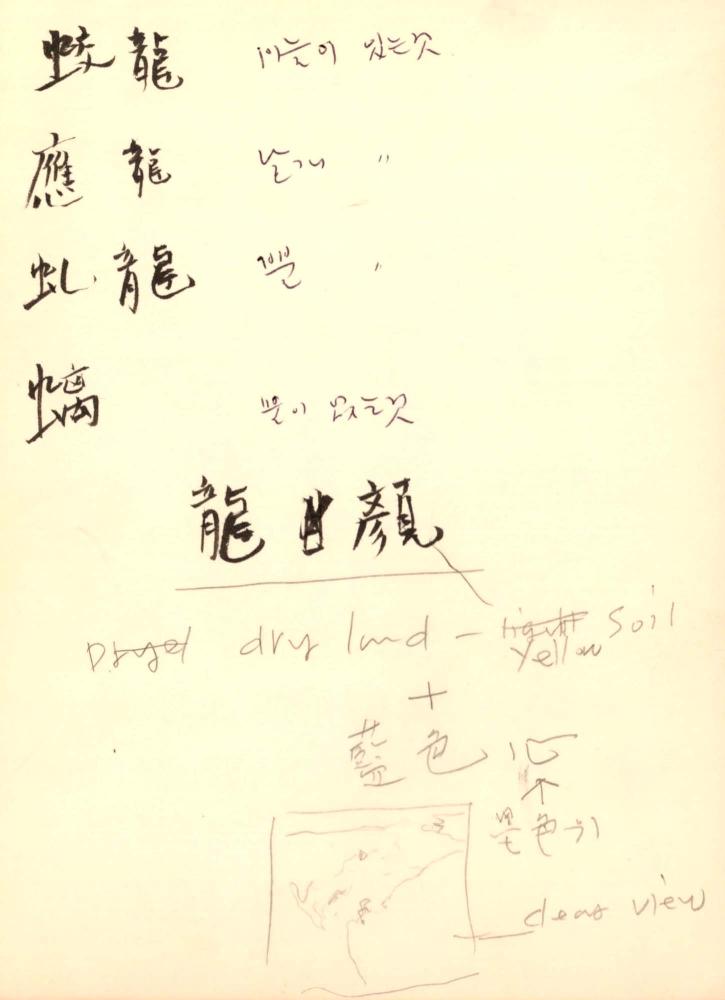 蛟龍 비늘이 있는것
應龍 날개 〃
虬龍 뿔 〃
螭 뿔이 없는것
龍 顔
Dryed dry land - light yellow soil
+
藍色 心
↑
墨色위
clear view